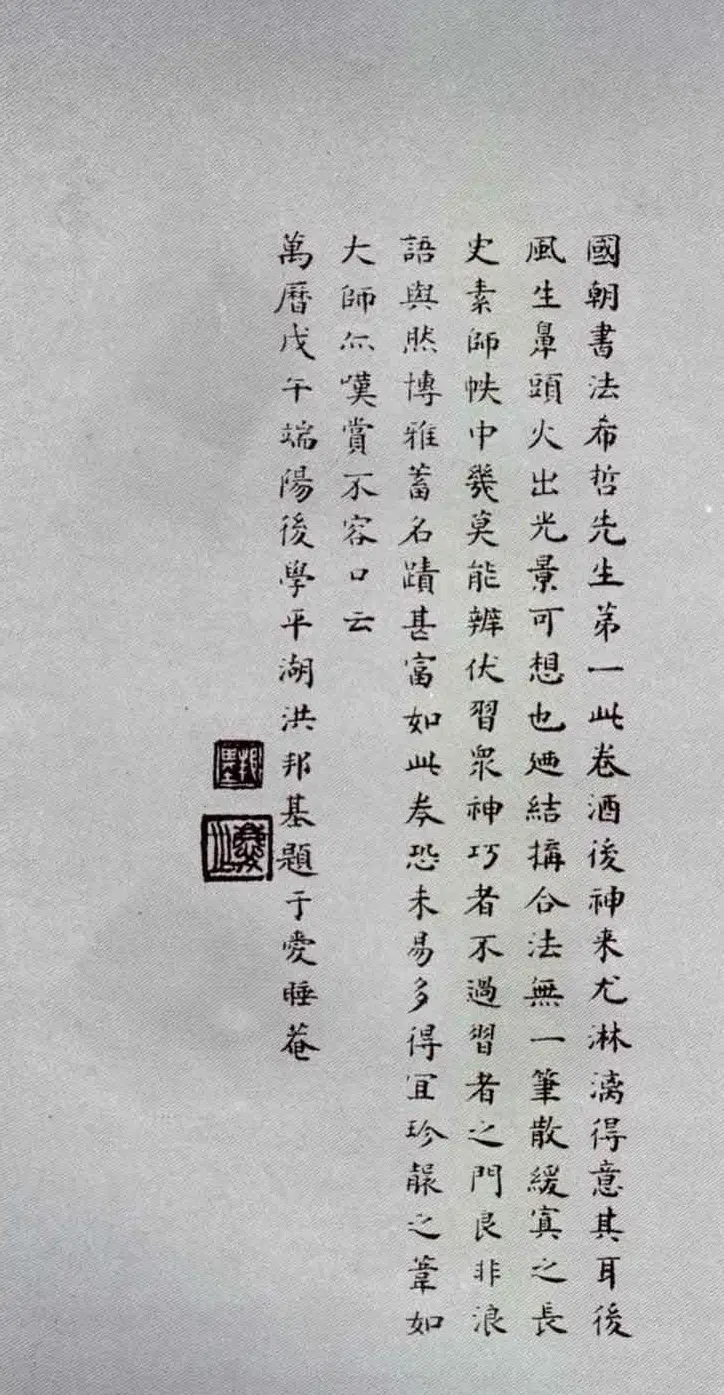 國朝書法希哲先生第一此卷酒後神来尤淋漓得意其耳後
風生鼻頭火出光景可想也迺結搆合法無一筆散緩寘之長
史素師帙中幾莫能辨伏習衆神巧者不過習者之門良非浪
語與然博雅蓄名蹟甚富如此卷恐未易多得宜珍襲之葦如
大師亦嘆賞不容口云
萬曆戊午端陽後學平湖洪邦基題于愛睡菴